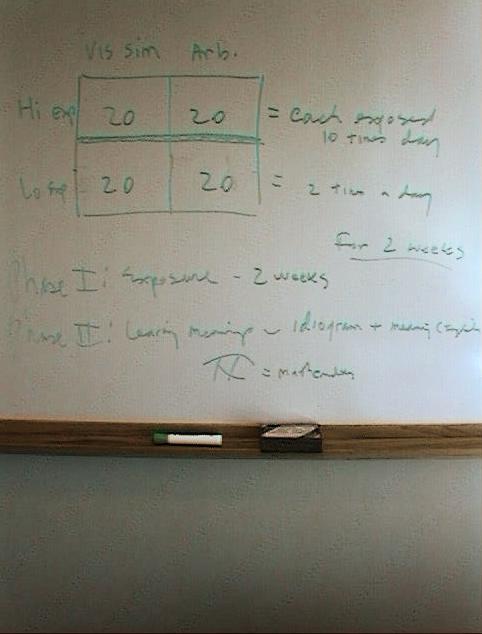 Vis sim Arb.
Hi exp 20 20 = each exposed
10 times day
Lo exp 20 20 = 2 times a day
For 2 weeks
Phase I: Exposure - 2 weeks
Phase II: Learning meanings - idiogram + meaning (English
=